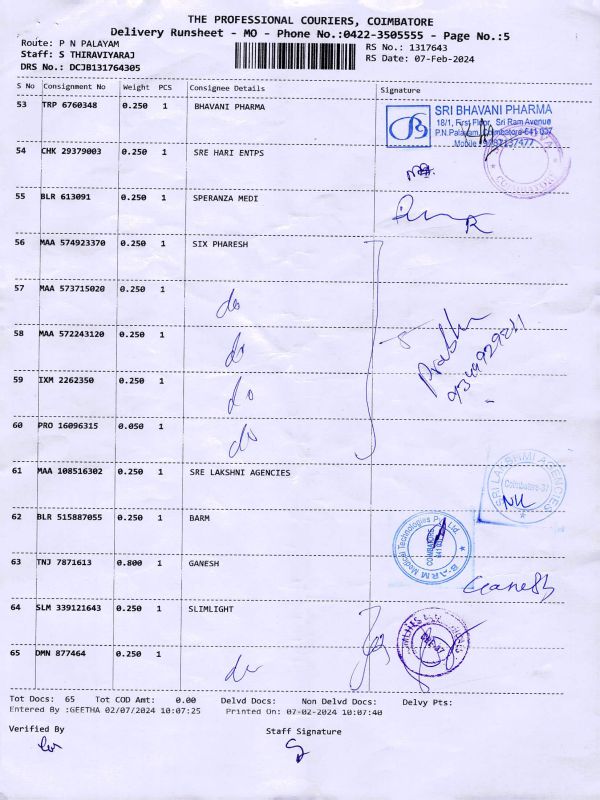 THE PROFESSIONAL COURIERS, COIMBATORE
Delivery Runsheet - MO - Phone No.:0422-3505555 - Page No.:5
Route: P N PALAYAM
Staff: S THIRAVIYARAJ
DRS No.: DCJB131764305
RS No.: 1317643
RS Date: 07-Feb-2024
S No Consignment No Weight PCS Consignee Details Signature
53 TRP 6760348 0.250 1 BHAVANI PHARMA
SRI BHAVANI PHARMA
18/1, First Floor, Sri Ram Avenue
P.N.Palayam, Coimbatore-641 037
54 CHK 29379003 0.250 1 SRE HARI ENTPS
55 BLR 613091 0.250 1 SPERANZA MEDI
56 MAA 574923370 0.250 1 SIX PHARESH
57 MAA 573715020 0.250 1 do
58 MAA 572243120 0.250 1 do
Prabhu
59 IXM 2262350 0.250 1 do
60 PRO 16096315 0.050 1 do
61 MAA 108516302 0.250 1 SRE LAKSHNI AGENCIES
SRI LAKSHMI AGENCIES
Coimbatore-37
62 BLR 515887055 0.250 1 BARM
B-ARM Medical Technologies Pvt Ltd
COIMBATORE
63 TNJ 7871613 0.800 1 GANESH
Ganesh
64 SLM 339121643 0.250 1 SLIMLIGHT
65 DMN 877464 0.250 1
Tot Docs: 65 Tot COD Amt: 0.00 Delvd Docs: Non Delvd Docs: Delvy Pts:
Entered By :GEETHA 02/07/2024 10:07:25 Printed On: 07-02-2024 10:07:40
Verified By Staff Signature